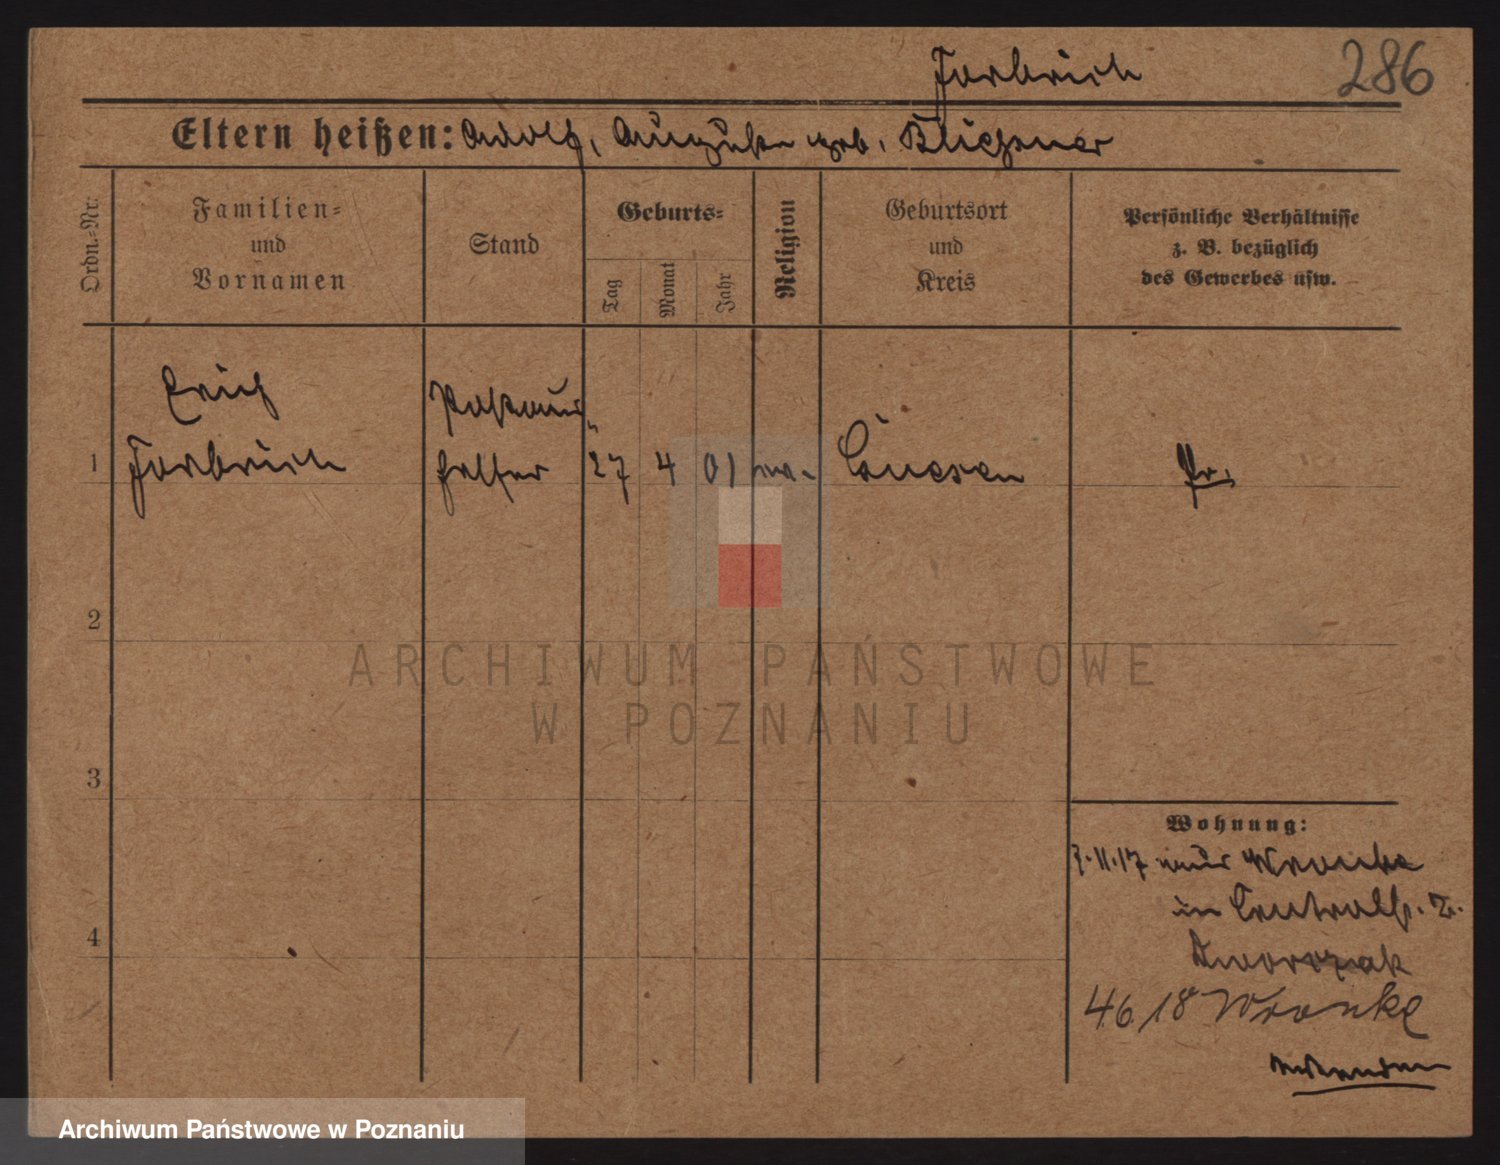 Forbrich 286
Eltern heißen: Adolf, Auguste geb. Kliegsner
Ordn.-Nr.
Familien-
und
Vornamen
Stand
Geburts-
Tag
Monat
Jahr
Religion
Geburtsort
und
Kreis
Persönliche Verhältnisse
z. B. bezüglich
des Gewerbes usw.
Erich Postaus-
1 Forbrich helfer 27 4 01 Gnesen Pr.
2
3
Wohnung:
7.11.17 Wronke
in
4
Dworczak
4.6.18 Wronke
ARCHIWUM PAŃSTWOWE
W POZNANIU
Archiwum Państwowe w Poznaniu